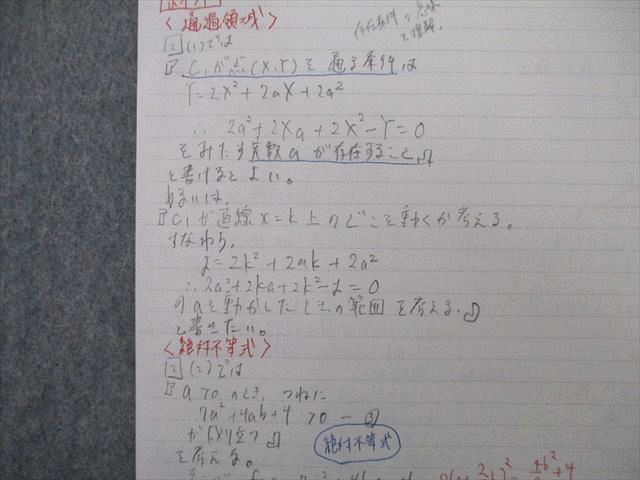 <通過領域>
存在条件の意味
を理解。
② (1)では
『C₁が点(X,Y)を通る条件は
Y=2X²+2aX+2a²
∴ 2a²+2Xa+2X²-Y=0
をみたす実数aが存在すること』
と書けるとよい。
あるいは、
『C₁が直線x=k上のどこを動くか考える。
すなわち、
y=2k²+2ak+2a²
∴2a²+2ka+2k²-y=0
のaを動かしたときの範囲を考える。』
と書きたい。
<絶対不等式>
② (2)では
『a>0のとき、つねに
7a²+4ab+4>0 - ③
が成り立つ』
絶対不等式
を考える。